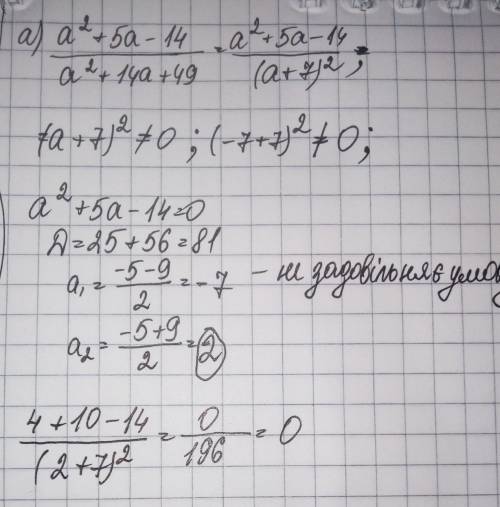 а) a²+5a-14 / a²+14a+49 = a²+5a-14 / (a+7)²;
(a+7)²≠0 ; (-7+7)²≠0;
a²+5a-14=0
Д=25+56=81
a₁ = -5-9 / 2 = -7 - не задовільняє умов
a₂ = -5+9 / 2 = 2
4+10-14 / (2+7)² = 0 / 196 = 0